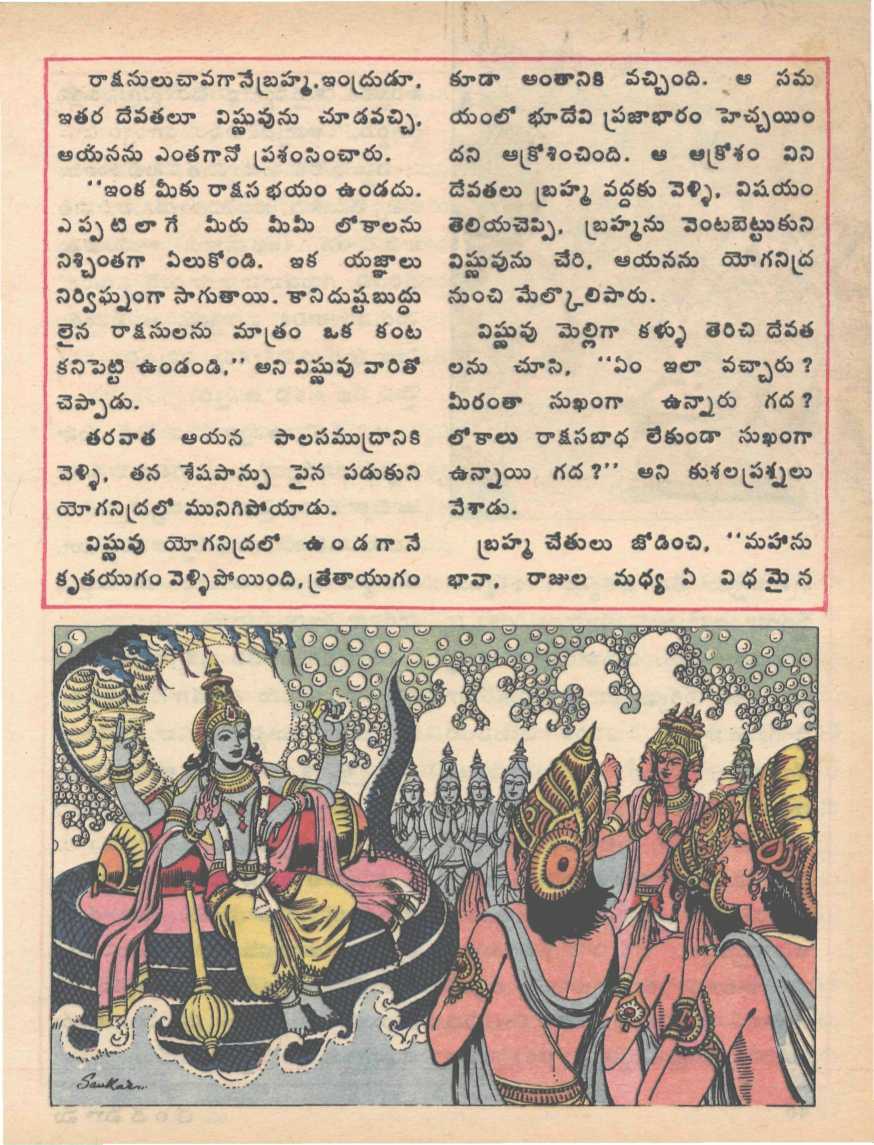 రాక్షసులుచావగానేబ్రహ్మ, ఇంద్రుడూ,
ఇతర దేవతలూ విష్ణువును చూడవచ్చి,
ఆయనను ఎంతగానో ప్రశంసించారు.
"ఇంక మీకు రాక్షస భయం ఉండదు.
ఎప్పటిలాగే మీరు మీమీ లోకాలను
నిశ్చింతగా ఏలుకోండి. ఇక యజ్ఞాలు
నిర్విఘ్నంగా సాగుతాయి. కానిదుష్టబుద్ధు
లైన రాక్షసులను మాత్రం ఒక కంట
కనిపెట్టి ఉండండి," అని విష్ణువు వారితో
చెప్పాడు.
తరవాత ఆయన పాలసముద్రానికి
వెళ్ళి, తన శేషపాన్పు పైన పడుకుని
యోగనిద్రలో మునిగిపోయాడు.
విష్ణువు యోగనిద్రలో ఉండగానే
కృతయుగం వెళ్ళిపోయింది, త్రేతాయుగం
కూడా అంతానికి వచ్చింది. ఆ సమ
యంలో భూదేవి ప్రజాభారం హెచ్చయిం
దని ఆక్రోశించింది. ఆ ఆక్రోశం విని
దేవతలు బ్రహ్మ వద్దకు వెళ్ళి, విషయం
తెలియచెప్పి, బ్రహ్మను వెంటబెట్టుకుని
విష్ణువును చేరి, ఆయనను యోగనిద్ర
నుంచి మేల్కొలిపారు.
విష్ణువు మెల్లిగా కళ్ళు తెరిచి దేవత
లను చూసి, "ఏం ఇలా వచ్చారు?
మీరంతా సుఖంగా ఉన్నారు గద?
లోకాలు రాక్షసబాధ లేకుండా సుఖంగా
ఉన్నాయి గద?" అని కుశలప్రశ్నలు
వేశాడు.
బ్రహ్మ చేతులు జోడించి, "మహాను
భావా, రాజుల మధ్య ఏ విధమైన
Sankar..